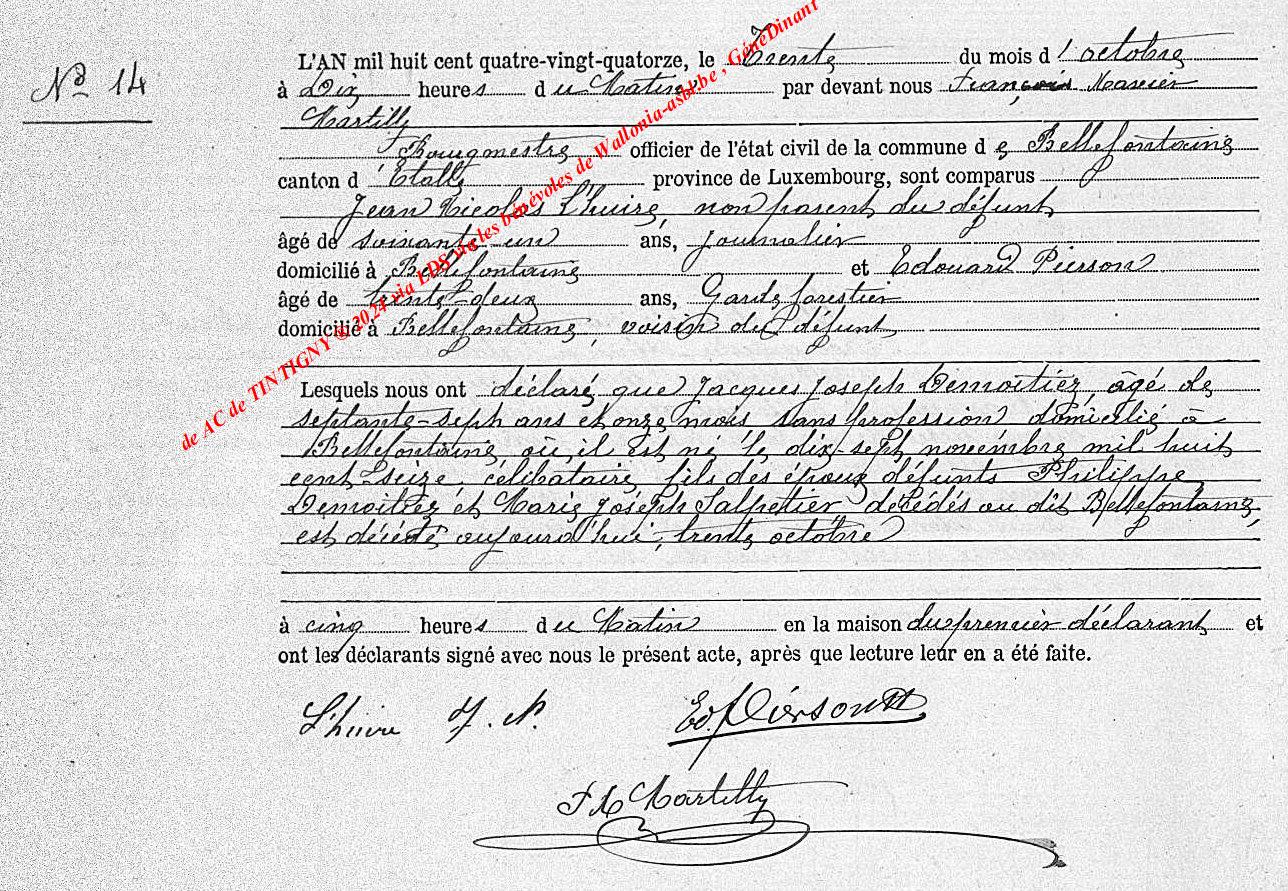 Nº 14
L'AN mil huit cent quatre-vingt-quatorze, le Trente du mois d'octobre
à Dix heures du Matin par devant nous François Xavier
Martilly
Bourgmestre officier de l'état civil de la commune de Bellefontaine
canton d'Etalle province de Luxembourg, sont comparus
Jean Nicolas L'huire, non parent du défunt
âgé de soixante un ans, Journalier
domicilié à Bellefontaine et Edouard Pierson
âgé de trente-deux ans, Garde forestier
domicilié à Bellefontaine, voisin du défunt
Lesquels nous ont déclaré que Jacques Joseph Demoitiez, âgé de
septante-sept ans et onze mois sans profession domicilié à
Bellefontaine où il est né le dix-sept novembre mil huit
cent seize, célibataire, fils des époux défunts Philippe
Demoitiez et Marie Joseph Salpetier décédés au dit Bellefontaine,
est décédé aujourd'hui, trente octobre
à cinq heures du Matin en la maison du premier déclarant et
ont les déclarants signé avec nous le présent acte, après que lecture leur en a été faite.
L'huire J. N. Ed. Pierson
F X Martilly
de AC de TINTIGNY ® 2024 via LDS via les bénévoles de Wallonia-asbl.be , GénéDinant